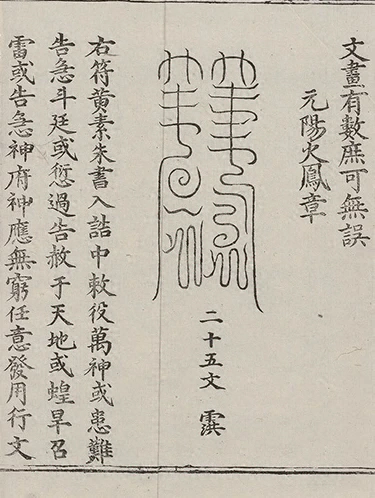 文畫有數庶可無誤
元陽火鳳章
二十五文
右符黃素朱書入誥中敕役萬神或患難
告急斗廷或愆過告赦于天地或蝗旱召
雷或告急神府神應無窮任意發用行文